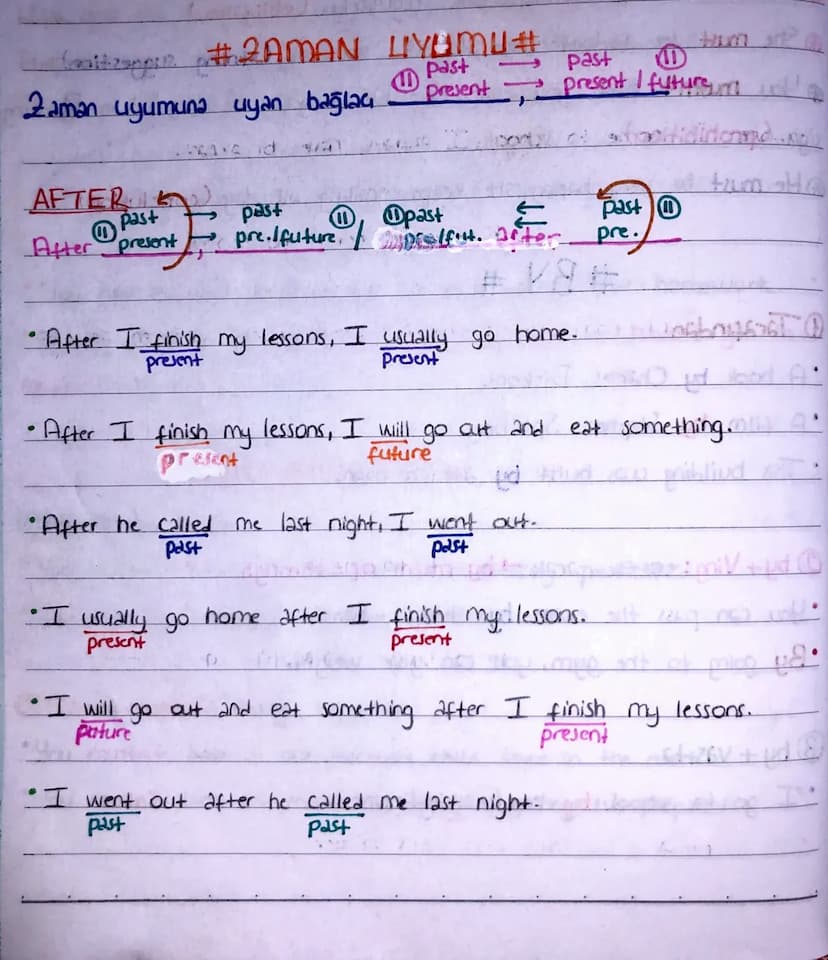 #ZAMAN UYUMU#
⑪ past → past ⑪
Zaman uyumuna uyan bağlacı present → , present / future
AFTER
⑪ past → past ⑪ / ⑪past ← past ⑪
After present → , pre./future. / pre/fut. after ← pre.
• After I finish my lessons, I usually go home.
present present
• After I finish my lessons, I will go out and eat something.
present future
• After he called me last night, I went out.
past past
• I usually go home after I finish my lessons.
present present
• I will go out and eat something after I finish my lessons.
puture present
• I went out after he called me last night.
past past